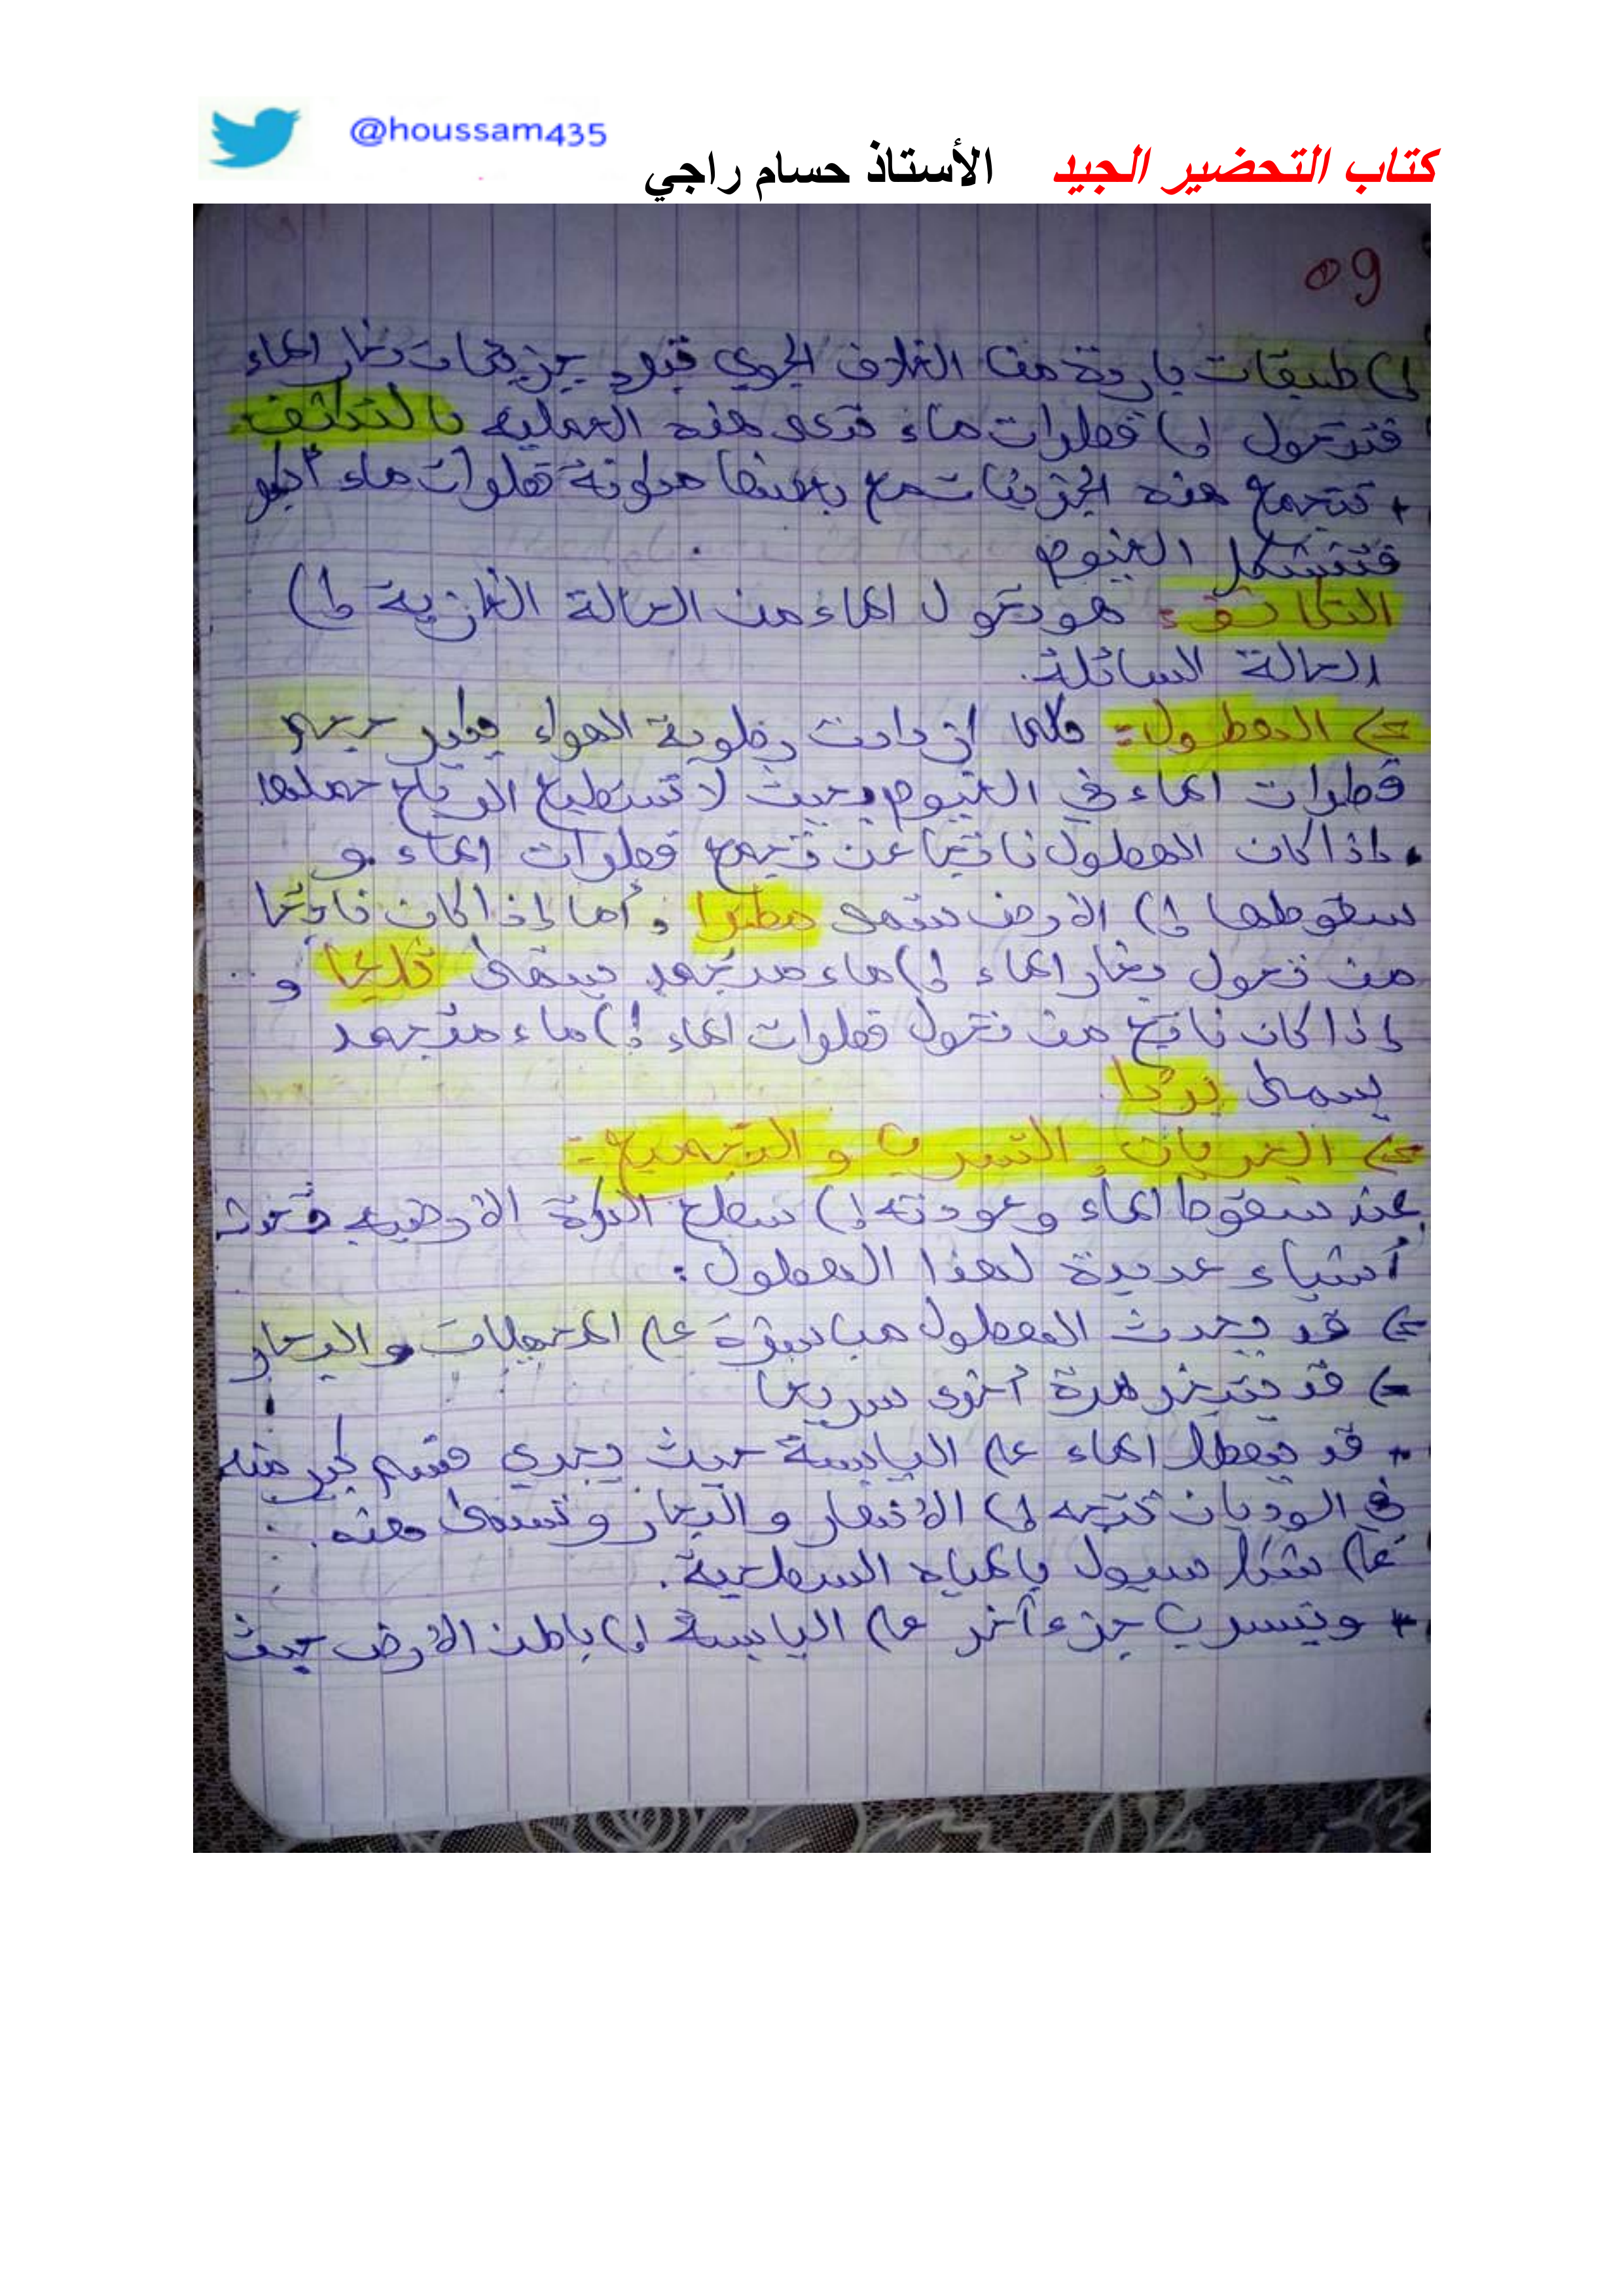 @houssam435
كتاب التحضير الجيد الأستاذ حسام راجي
09
إلى طبقات باردة من الغلاف الجوي فتبرد جزيئات بخار الماء
فتتحول إلى قطرات ماء تدعى هذه العملية بالتكاثف
+ تتجمع هذه الجزيئات مع بعضها مكونة قطرات ماء أكبر
فتتشكل الغيوم
التكاثف: هو تحول الماء من الحالة الغازية إلى
الحالة السائلة.
=> الهطول: كلما ازدادت رطوبة الهواء يكبر حجم
قطرات الماء في الغيوم بحيث لا تستطيع الرياح حملها
. إذا كان الهطول ناتجا عن تجمع قطرات الماء و
سقوطها إلى الأرض سمي مطرا، أما إذا كان ناتجا
من تحول بخار الماء إلى ماء متجمد يسمى ثلجا و
إذا كان ناتج من تحول قطرات الماء إلى ماء متجمد
يسمى بردا
=> الجريان، التسرب والتجميع:
عند سقوط الماء وعودته إلى سطح الكرة الأرضية تحدث
أشياء عديدة لهذا الهطول:
=> قد يحدث الهطول مباشرة على المحيطات والبحار
=> قد يتبخر مرة أخرى سريعا
+ قد يهطل الماء على اليابسة حيث يجري قسم كبير منه
في الوديان تتجه إلى الأنهار والبحار وتسمى
على شكل سيول بالمياه السطحية.
+ ويتسرب جزء آخر على اليابسة إلى باطن الأرض حيث